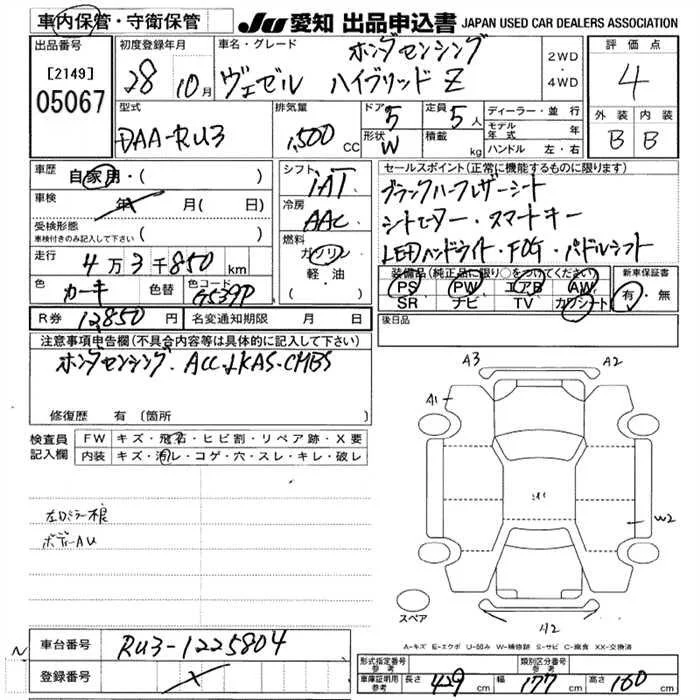 車内保管・守衛保管
JU 愛知 出品申込書 JAPAN USED CAR DEALERS ASSOCIATION
出品番号
[2149]
05067
初度登録年月
28 10月
車名・グレード
ホンダセンシング
ヴェゼル ハイブリッド Z
2WD
・
4WD
評価点
4
外装 内装
B B
型式
DAA-RU3
排気量
1,500 CC
ドア 5
形状 W
定員 5人
積載 kg
ディーラー・並行
モデル年式 年
ハンドル 左・右
車歴 自家用・( )
車検 年 X 月(日)
受検形態
車検付きのみ記入して下さい ( )
走行 4万3千850km
色 カーキ 色替 色コード G539P
R券 12850円 名変通知期限 月 日
シフト
IAT
冷房
AAC
燃料
ガソリン
軽・油
セールスポイント(正常に機能するものに限ります)
ブラックハーフレザーシート
シートヒーター・スマートキー
LEDハンドライト・FOG・パドルシフト
装備品(純正品に限り○をつけてください)
PS PW エアB AW
SR ナビ TV カワシート
新車保証書
有・無
後日品
注意事項申告欄(不具合内容等は具体的に記入して下さい)
ホンダセンシング・ACC・LKAS・CMBS
修復歴 有(箇所
検査員記入欄
FW キズ・飛石・ヒビ割・リペア跡・X要
内装 キズ・汚レ・コゲ・穴・スレ・キレ・破レ
左ロミラー根
ボディーAU
A3 A2
A1
W2
A2
スペア
A-キズ E-エクボ U-凹み W-補修跡 S-サビ C-腐食 XX-交換済
車台番号 RU3-1225804
登録番号 X
型式指定番号 参考
類別区分番号 参考
車庫証明用 参考 長さ 429cm 幅 177cm 高さ 160cm